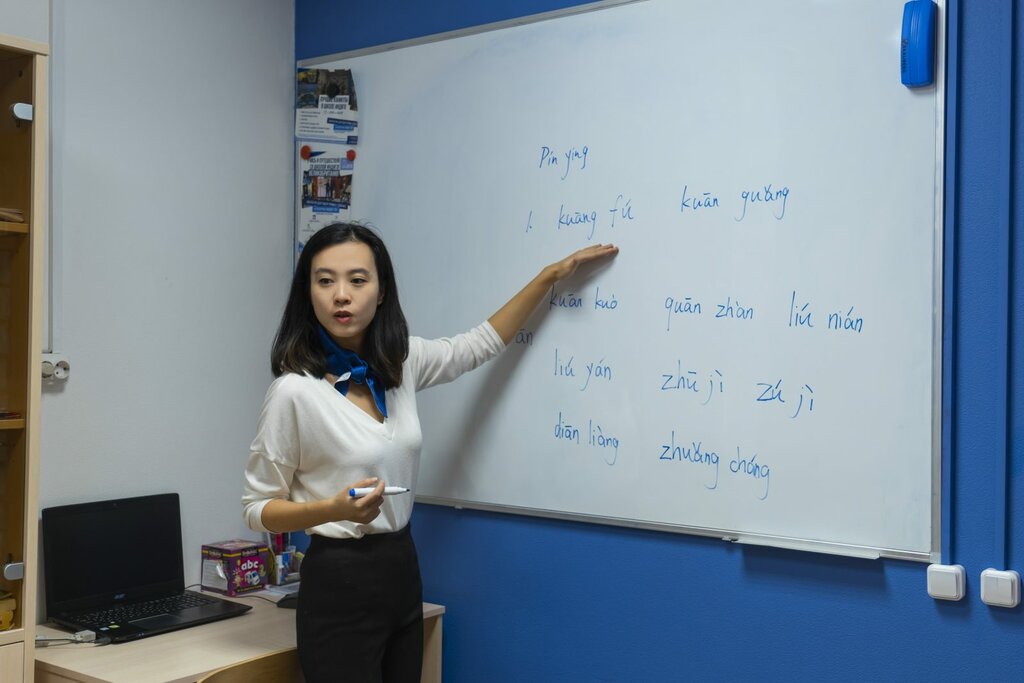 Pin ying
1. kuāng fú kuān guǎng
kuān kuò quān zhàn liú nián
ān
liú yán zhū jì zú jì
diān liàng zhuǎng chóng
abc
acer